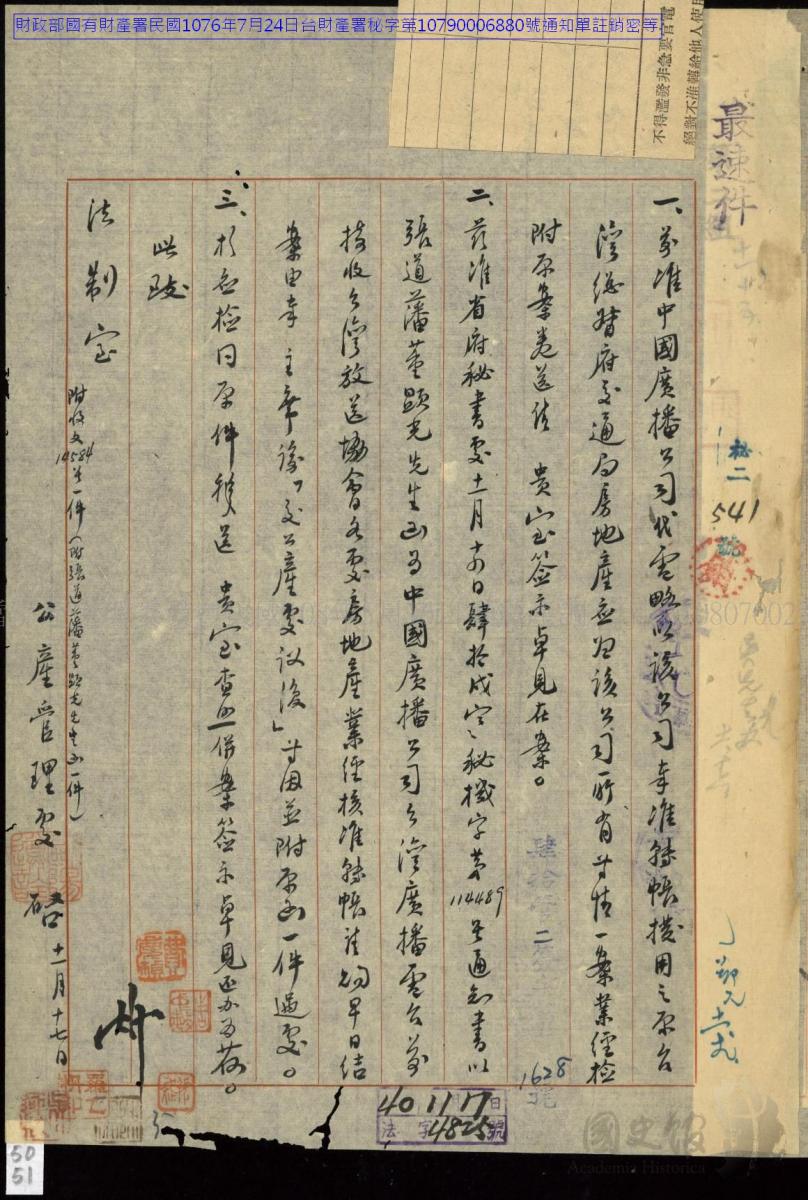 財政部國有財產署民國1076年7月24日台財產署秘字第10790006880號通知單註銷密等
不得濫發非急要官電
絕對不准轉給他人使用
最速件
秘二
541
號
一、前准中國廣播公司代電略以該公司奉准轉帳撥用之原台
灣總督府交通局房地產應為該公司所有等情一案業經檢
附原案卷送法 貴室簽示卓見在案。
二、茲准省府秘書處十一月 日肆拾戌 秘機字第114489號通知書以
張道藩董顯光先生函為中國廣播公司台灣廣播電台前
接收台灣放送協會各處房地產業經核准轉帳請飭早日結
案由奉 主席諭「交公產處議復」等因並附原函一件過處。
三、相應檢同原件移送 貴室查照併案簽示卓見送辦為荷。
此致
法制室
附收文14584號一件(附張道藩董顯光先生函一件)
公產管理處 啓 十一月十七日
1628
40 11 17 日
法 字 4825 號
國史館
Academia Historica
50
51